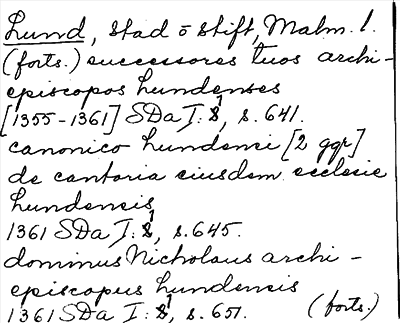 Lund, stad o stift, Malm. l.
(forts.) successores tuos archi-
episcopos Lundenses
[1355-1361] SDa I: 8¹, s. 641.
canonico Lundensi [2 ggr]
de cantoria eiusdem ecclesie
Lundensis
1361 SDa I: 8¹, s. 645.
dominus Nicholaus archi-
episcopus Lundensis
1361 SDa I: 8¹, s. 651. (forts.)